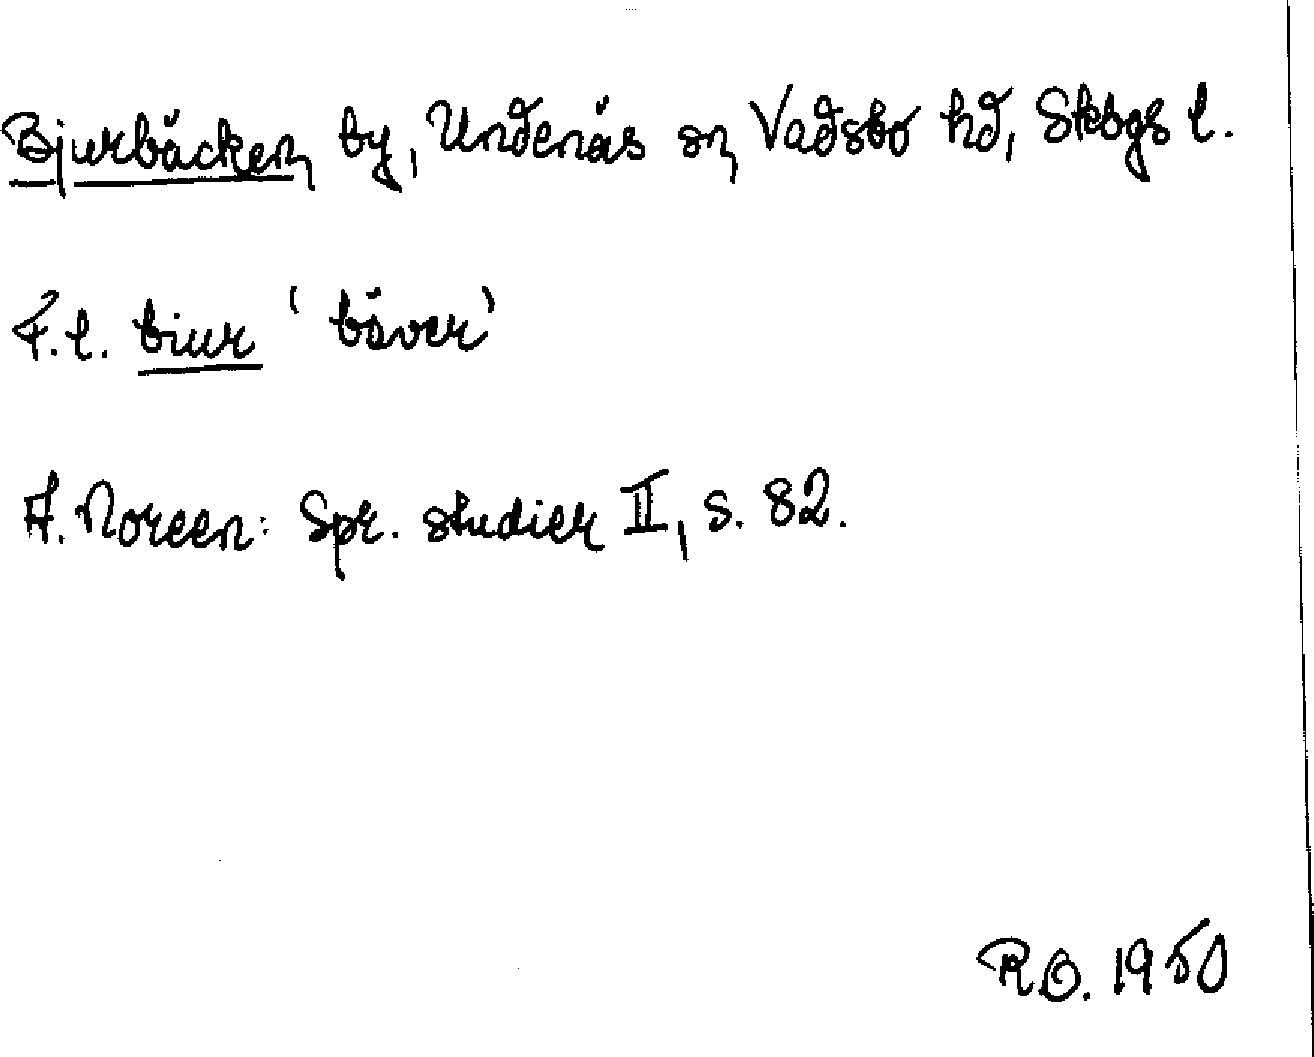 Bjurbäcken, by, Undenäs sn, Vadsbo hd, Skbgs l.
F.l. biur 'bäver'
A. Noreen: Spr. studier II, s. 82.
R.O. 1950